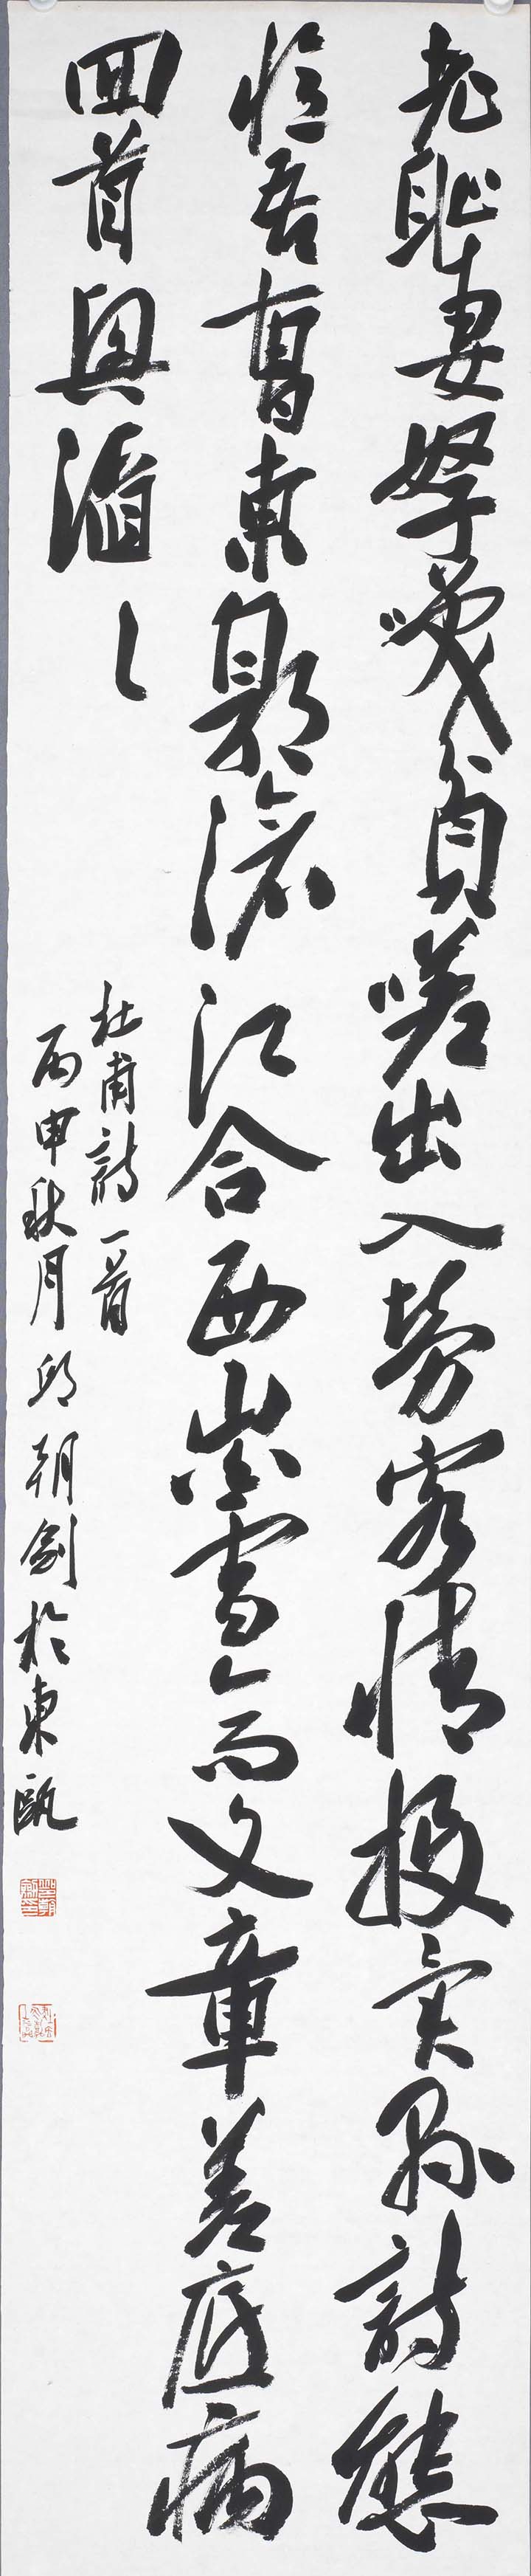 老恥妻孥咲貧嗟出入勞客情投异縣詩態
憶吾曹東郭滄江合西山白雪高文章差底病
回首興滔々
杜甫詩一首
丙申秋月邱朝劍於東甌